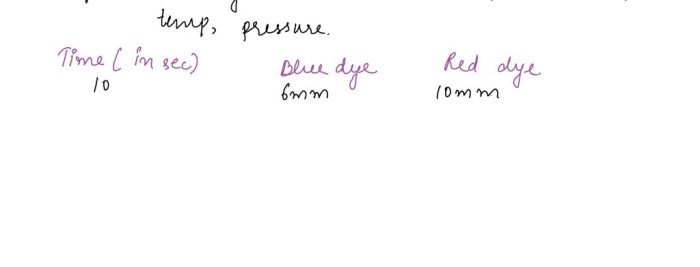 temp, pressure.
Time ( in sec) Blue dye Red dye
10 6mm 10mm